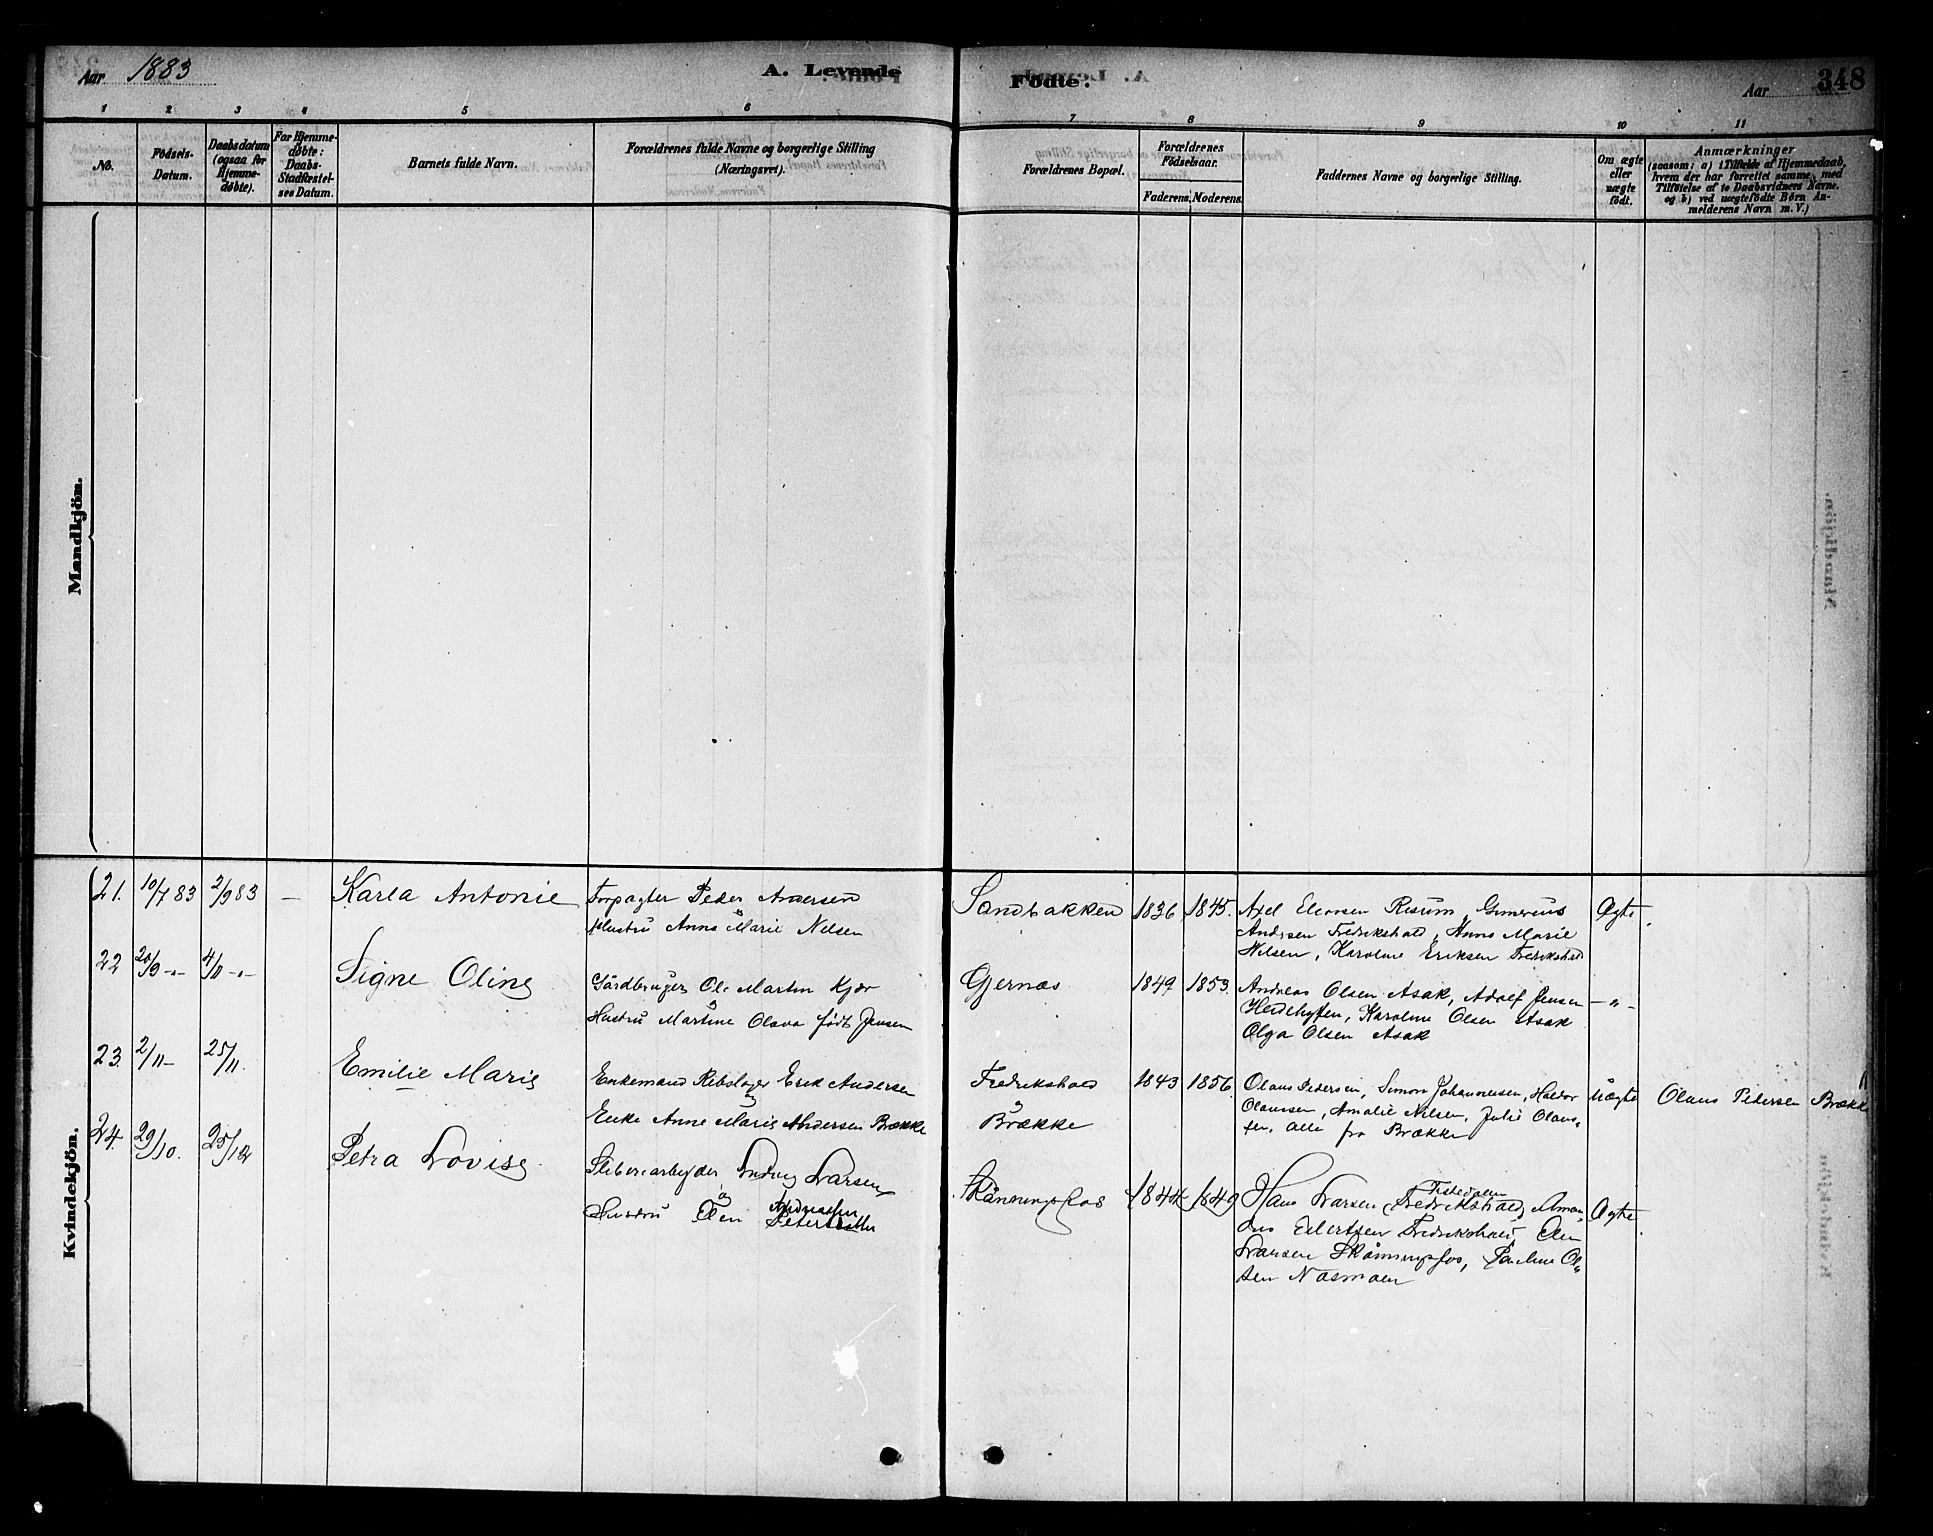 Aar 1883
A. Levende
Fødte.
Aar
348
1 2 3 4 5 6
7 8 9 10 11
No.
Fødsels-
Datum.
Daabsdatum
(ogsaa for
Hjemme-
døbte).
For Hjemme-
døbte:
Daabs-
Stadfæstel-
ses Datum.
Barnets fulde Navn.
Forældrenes fulde Navne og borgerlige Stilling
(Næringsvei).
Forældrenes Bopæl.
Forældrenes
Fødselsaar.
Faderens. Moderens.
Faddernes Navne og borgerlige Stilling.
Om ægte
eller
uægte
født.
Anmærkninger
(saasom: a) i Tilfælde af Hjemmedaab,
hvem der har forrettet samme, med
Tilføielse af to Daabsvidners Navne.
og b) ved uægtefødte Børn An-
melderens Navn m. V.)
Mandkjön.
Kvindekjön.
21. 10/7 83 2/9 83 — Karla Antonie
Forpagter Peder Andersen
Hustru Anne Marie Nilsen
Sandbakken 1836 1845.
Axel Elensen Risum, Gunerius
Andersen Fredrikshald, Anne Marie
Nilsen, Karoline Eriksen Fredrikshald
Ægte
22 20/9 -"- 4/11 -"- Signe Oline
Gårdbruger Ole Martin Kjær
Hustru Martine Olava født Jensen
Gjernæs 1849 1853.
Andreas Olsen Asak, Adolf Jensen
Karoline Olsen Asak
Olga Olsen Asak
—"—
23. 2/11 - 25/11. Emilie Marie
Enkemand Rebslager Erik Andersen
Enke Anne Marie Andersen Brække
Fredrikshald
Brække
1843 1856
Olaus Pedersen, Simon Johannesen, Haldor
Olaussen, Amalie Nilsen, Julie Olaus-
sen, alle fra Brække
Uægte
Olaus Pedersen Brække
24. 29/10. 25/12 Petra Lovise
Sliberiarbeyder Ludvig Larsen
Hustru Elen Andreassen
Skånningsfos 1844 1849
Hans Larsen Tistedalen Fredrikshald, Aman-
dus Eilertsen Fredrikshald, Elen
Larsen Skånningsfos, Pauline Ol-
sen Næsmoen
Ægte